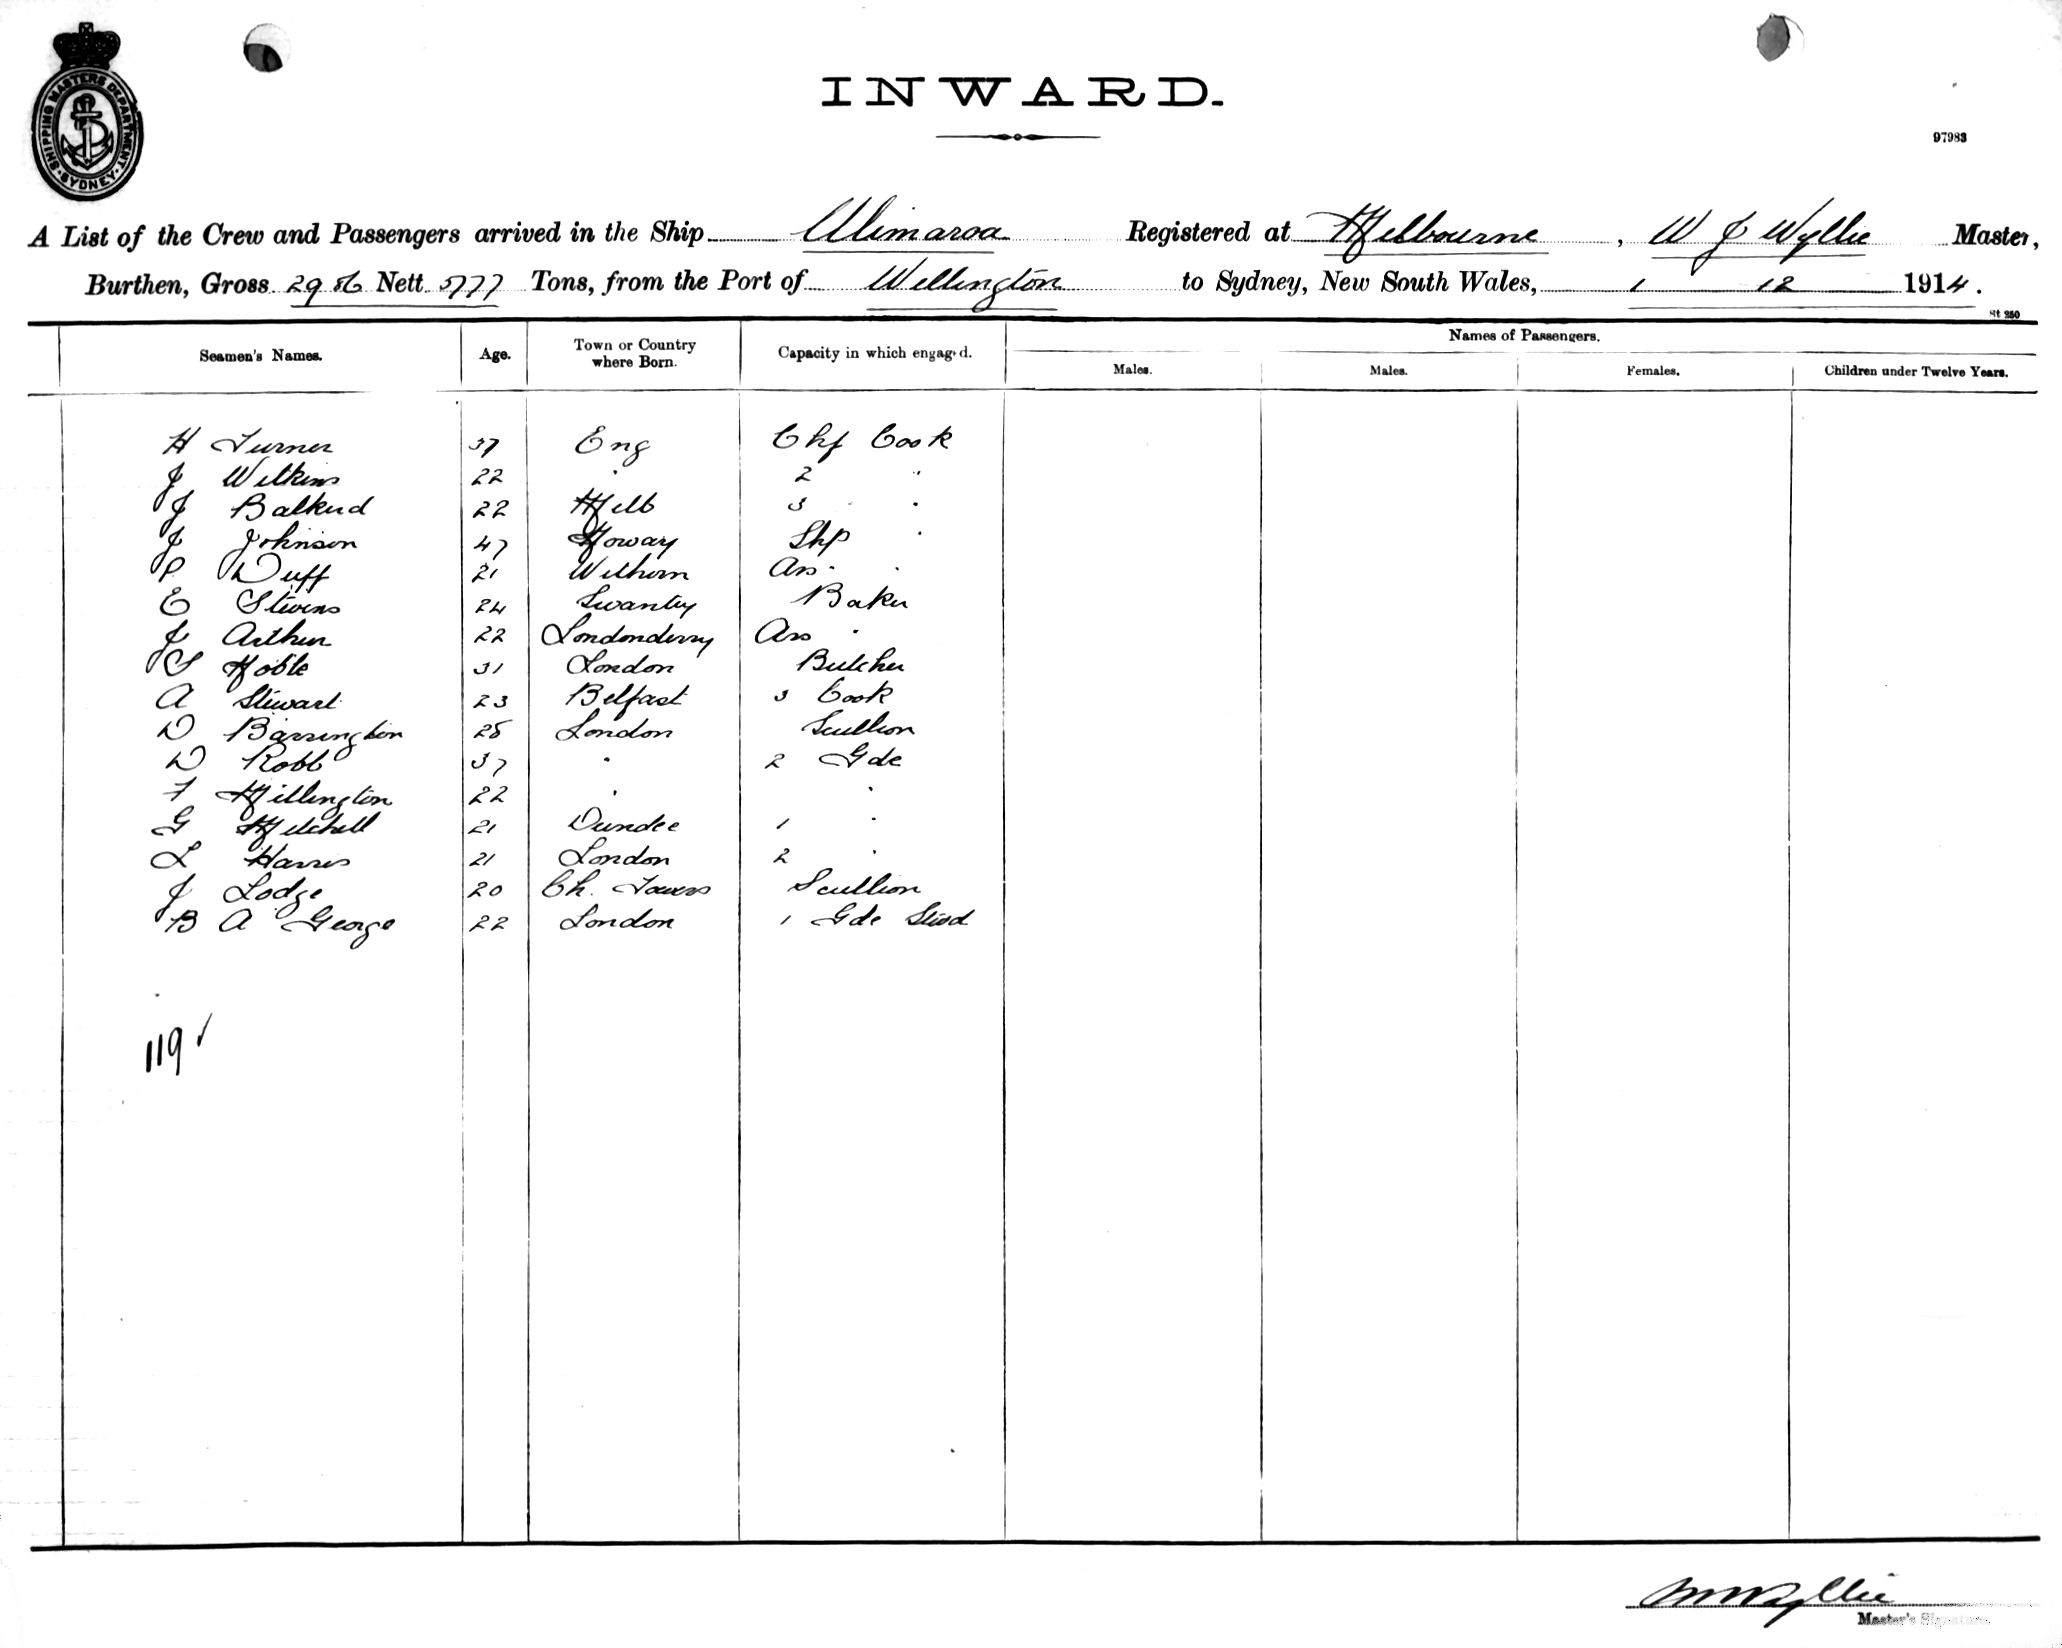 SHIPPING MASTERS DEPARTMENT · SYDNEY ·
INWARD.
97983
A List of the Crew and Passengers arrived in the Ship Ulimaroa Registered at Melbourne, W J Wyllie Master,
Burthen, Gross 2956 Nett 5777 Tons, from the Port of Wellington to Sydney, New South Wales, 1 12 1914.
St 250
Seamen's Names. Age. Town or Country where Born. Capacity in which engaged. Names of Passengers.
Males. Males. Females. Children under Twelve Years.
H Turner 37 Eng Chf Cook
J Wilkins 22 " 2 "
J Balkud 22 Melb 3 "
J Johnson 47 Noway Shp "
P Duff 21 Withorn Ass "
E Stevens 24 Baker
J Arthur 22 Londonderry Ass "
S Noble 31 London Butcher
A Stewart 23 Belfast 3 Cook
D Barrington 25 London Scullion
D Robb 37 " 2 Gde
F Millington 22 " "
G Mitchell 21 Dundee 1 "
L Harris 21 London 2 "
J Lodge 20 Ch. Towers Scullion
B A George 22 London 1 Gde Stwd
119 ✓
W J Wyllie
Master's Signature.